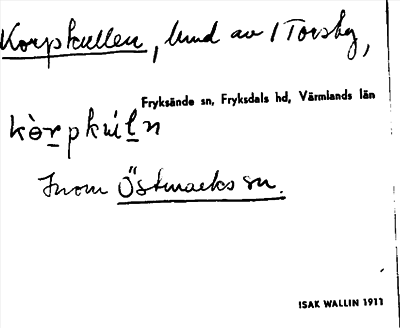 Korpkullen, lund av 1 Torsby,
Fryksände sn, Fryksdals hd, Värmlands län
kòrpkúln
Inom Östmarks sn.
ISAK WALLIN 1911